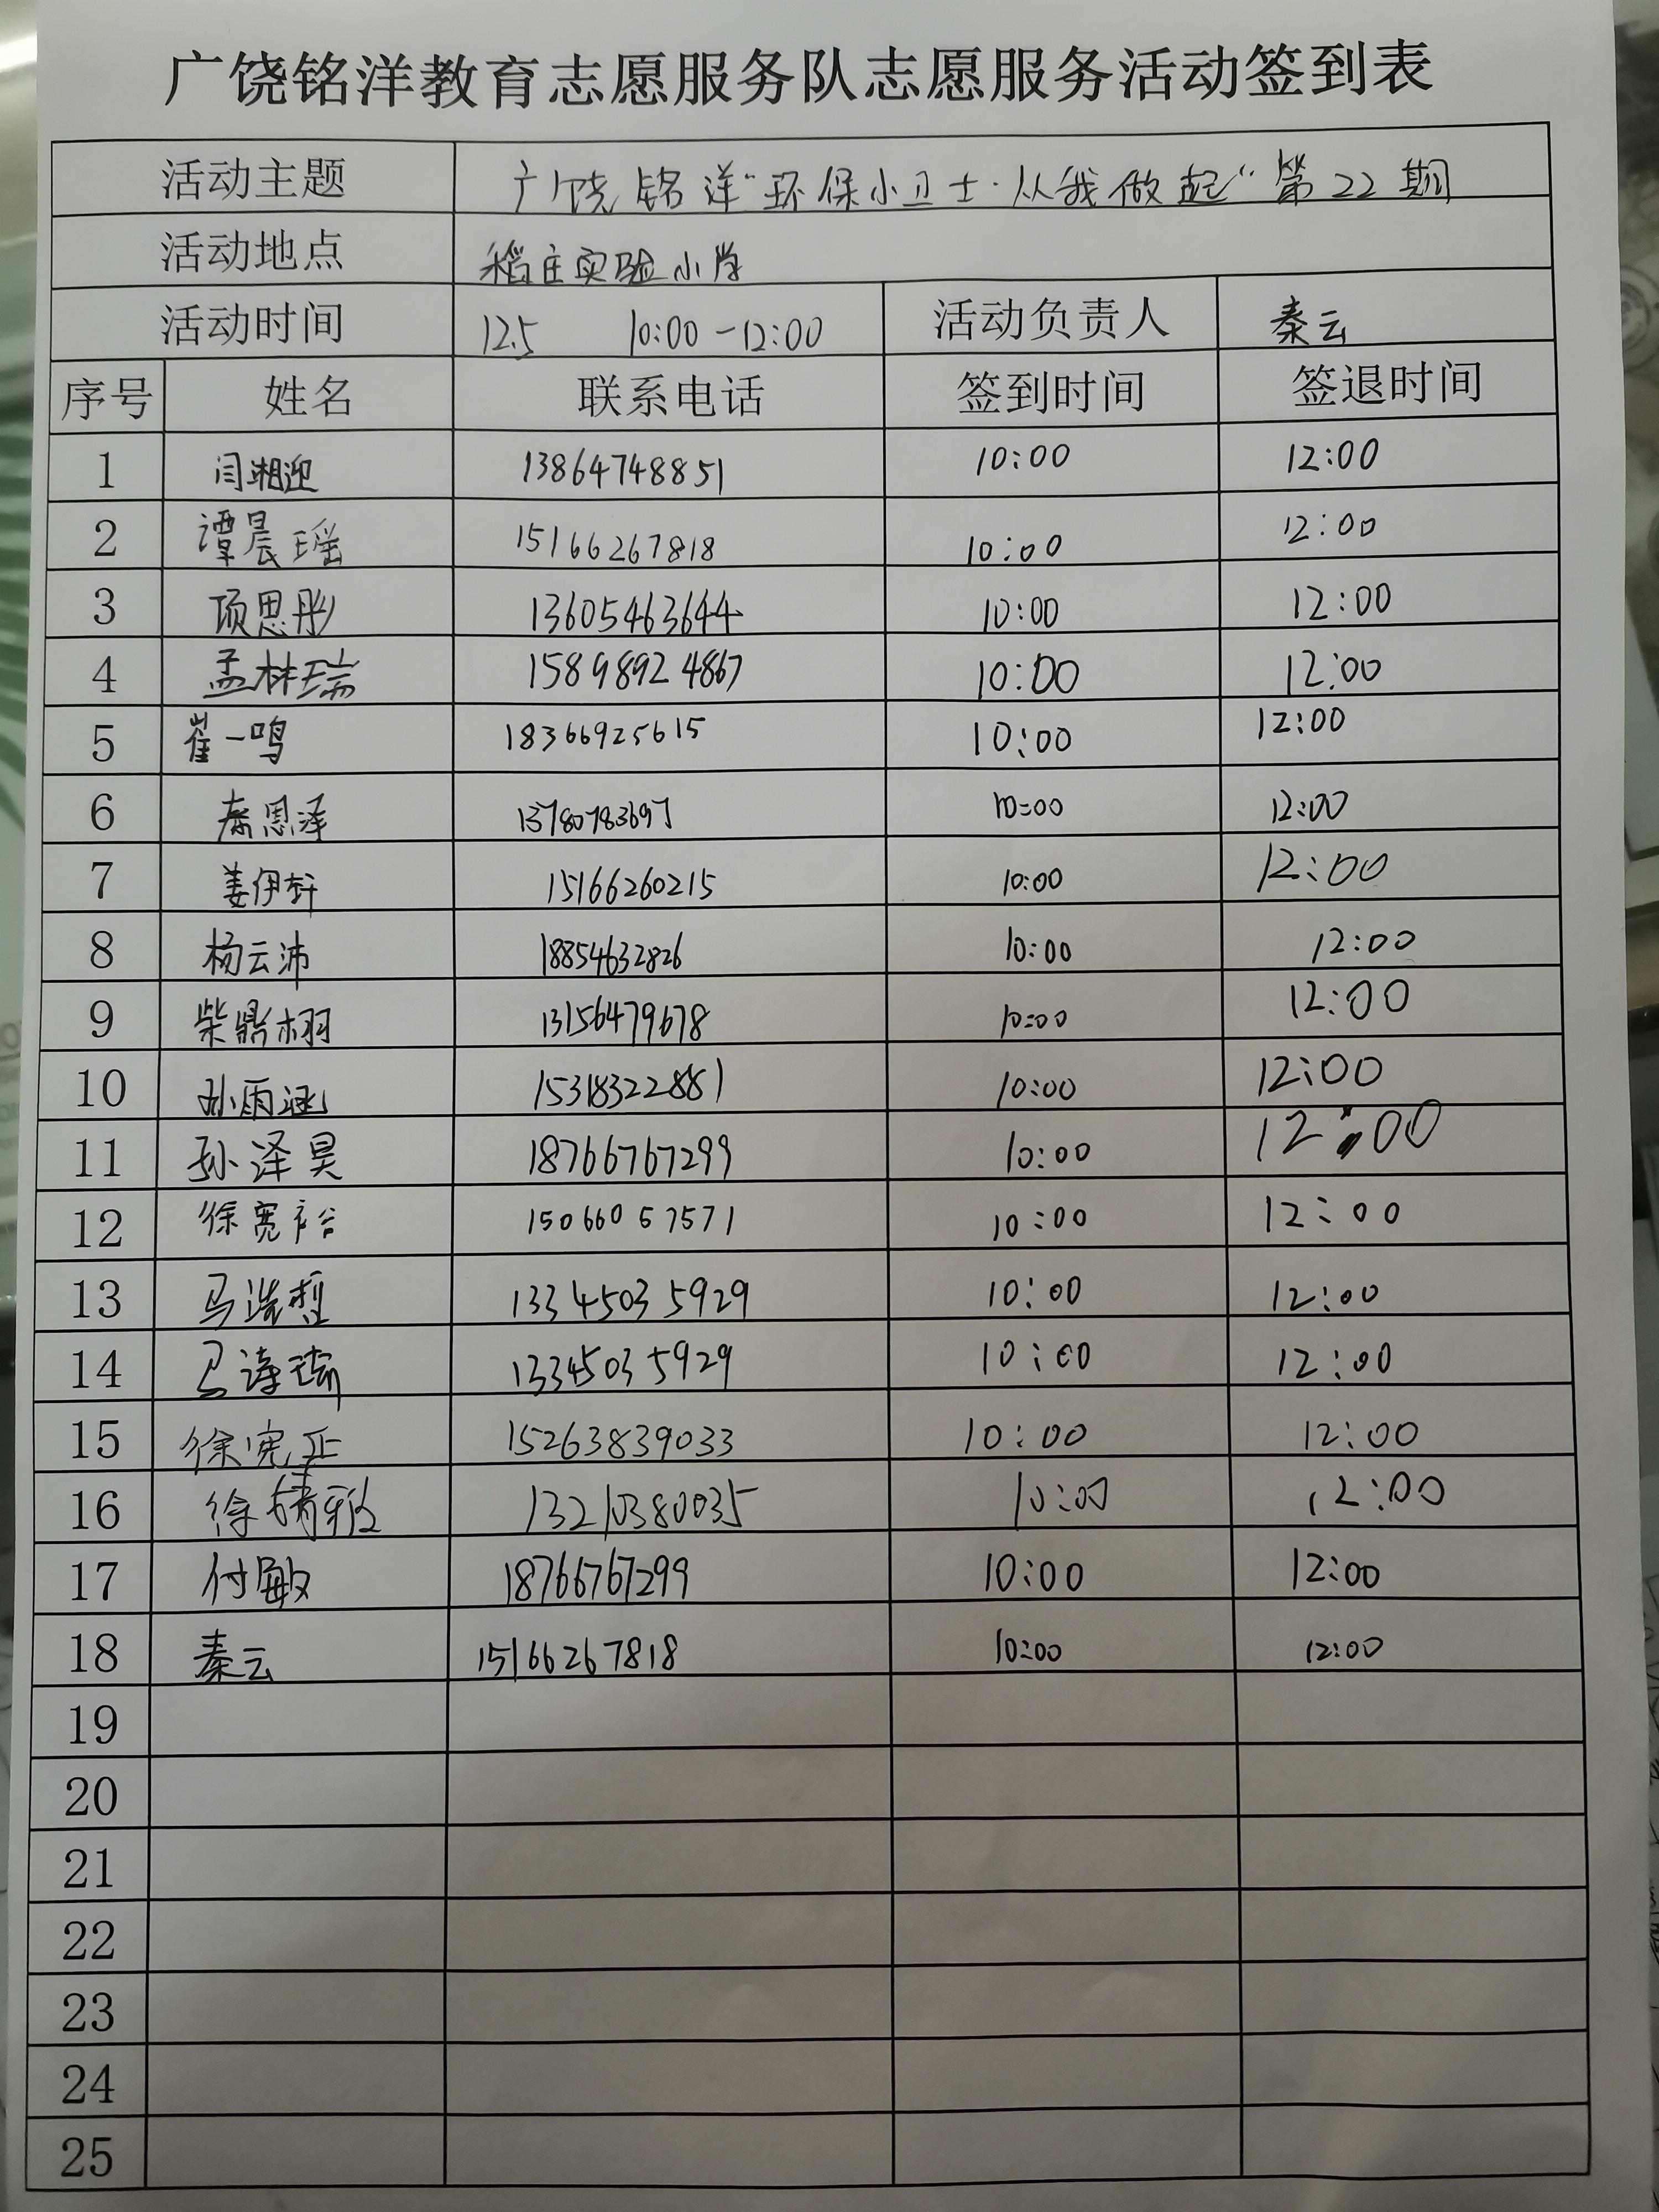 广饶铭洋教育志愿服务队志愿服务活动签到表
活动主题 广饶铭洋“环保小卫士·从我做起”第22期
活动地点 稻庄实验小学
活动时间 12.5 10:00-12:00 活动负责人 秦云
序号 姓名 联系电话 签到时间 签退时间
1 闫湘迎 13864748851 10:00 12:00
2 谭晨瑶 15166267818 10:00 12:00
3 项思彤 13605463644 10:00 12:00
4 孟林瑞 15898924867 10:00 12:00
5 崔一鸣 18366925615 10:00 12:00
6 秦恩泽 13780783697 10:00 12:00
7 姜伊轩 15166260215 10:00 12:00
8 杨云沛 18854632826 10:00 12:00
9 柴鼎栩 13156479678 10:00 12:00
10 孙雨涵 15318322881 10:00 12:00
11 孙泽昊 18766767299 10:00 12:00
12 徐宽裕 15066057571 10:00 12:00
13 马浩哲 13345035929 10:00 12:00
14 马诗瑜 13345035929 10:00 12:00
15 徐宪正 15263839033 10:00 12:00
16 徐婧雅 13210380035 10:00 12:00
17 付敏 18766767299 10:00 12:00
18 秦云 15166267818 10:00 12:00
19
20
21
22
23
24
25